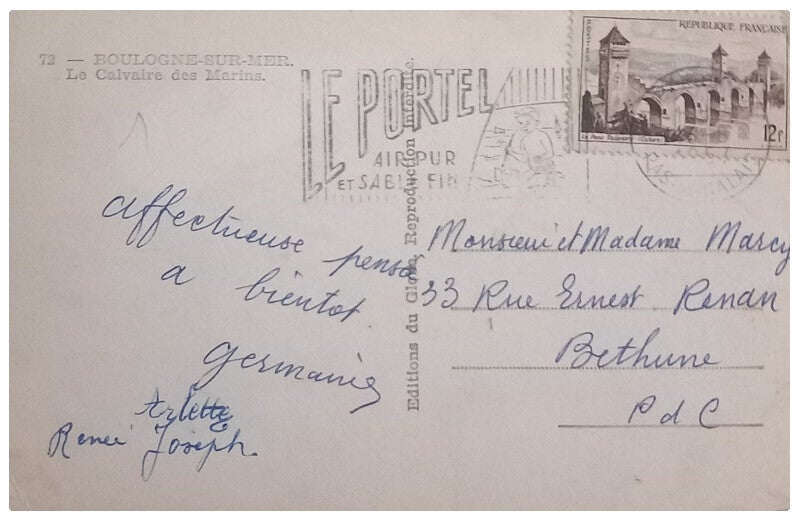 72 — BOULOGNE-SUR-MER.
Le Calvaire des Marins.
LE PORTEL
AIR PUR
ET SABLE FIN
REPUBLIQUE FRANÇAISE
POSTES
12f
PAS-DE-CALAIS
Editions du Globe. Reproduction Interdite.
affectueuse pensée
a bientot
Germaine
Arlette
Renée Joseph.
Monsieur et Madame Marcy
33 Rue Ernest Renan
Bethune
P d C